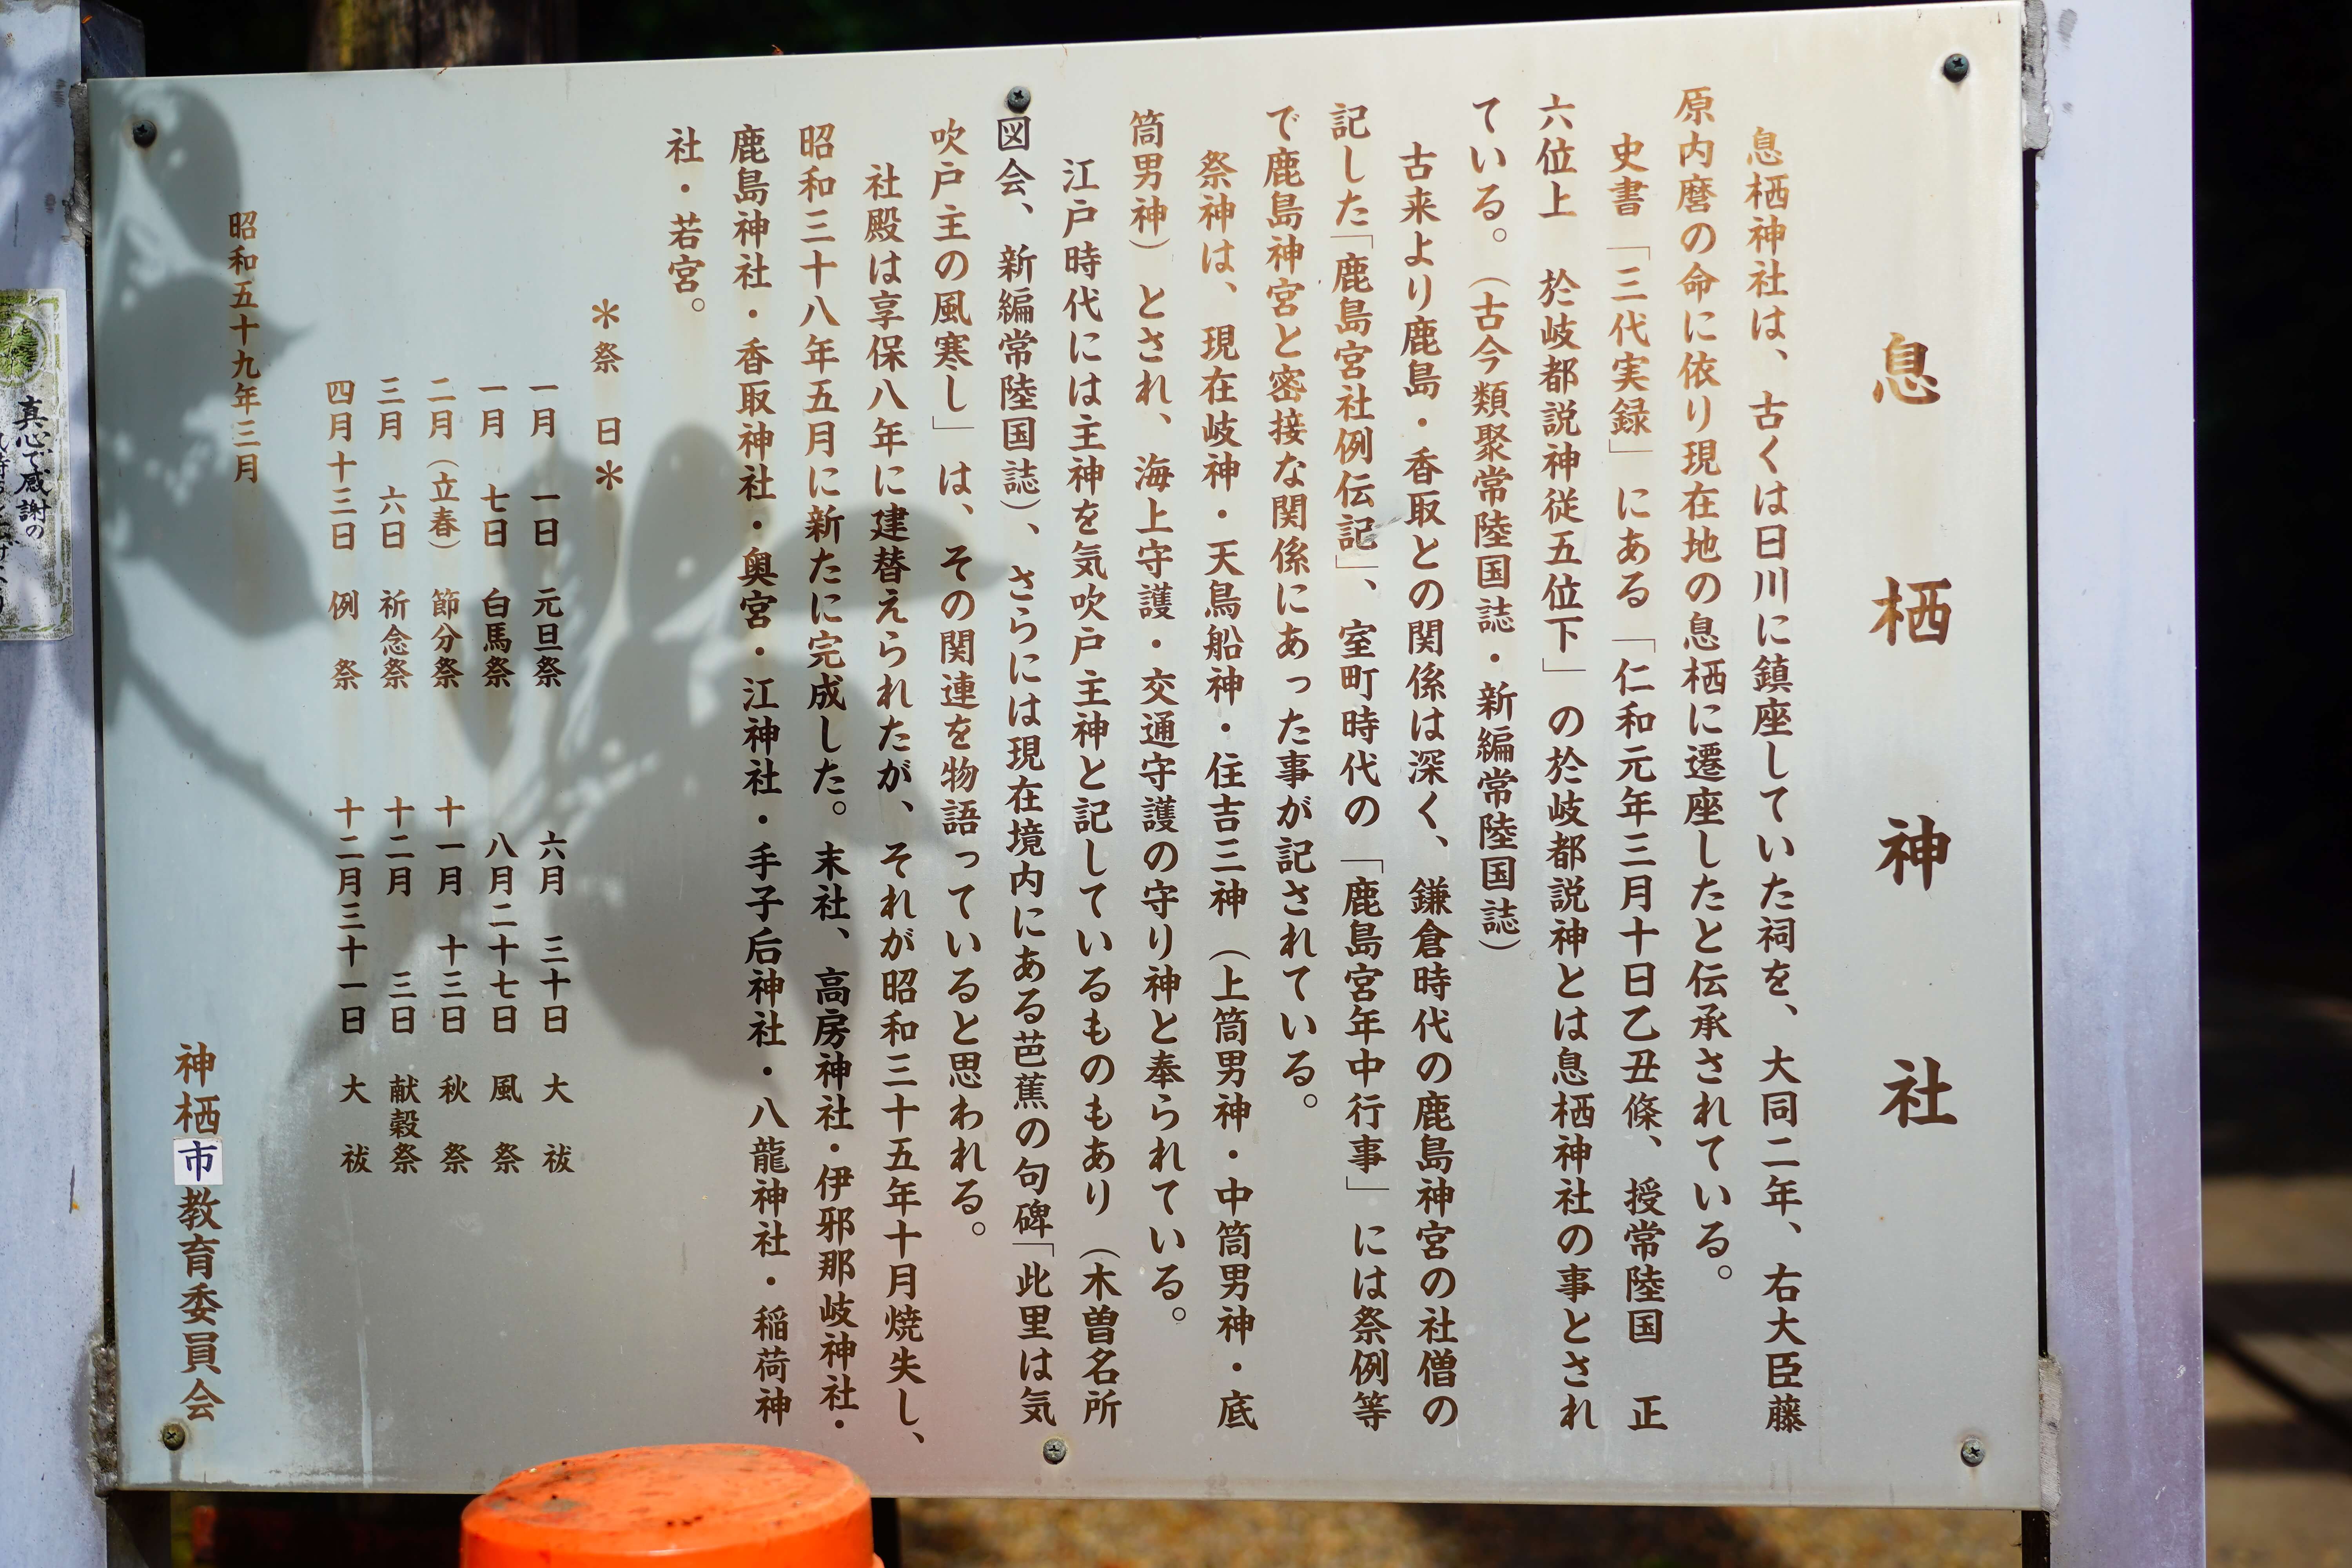 息栖神社
息栖神社は、古くは日川に鎮座していた祠を、大同二年、右大臣藤
原内麿の命に依り現在地の息栖に遷座したと伝承されている。
史書「三代実録」にある「仁和元年三月十日乙丑條、授常陸国　正
六位上　於岐都説神従五位下」の於岐都説神とは息栖神社の事とされ
ている。（古今類聚常陸国誌・新編常陸国誌）
古来より鹿島・香取との関係は深く、鎌倉時代の鹿島神宮の社僧の
記した「鹿島宮社例伝記」、室町時代の「鹿島宮年中行事」には祭例等
で鹿島神宮と密接な関係にあった事が記されている。
祭神は、現在岐神・天鳥船神・住吉三神（上筒男神・中筒男神・底
筒男神）とされ、海上守護・交通守護の守り神と奉られている。
江戸時代には主神を気吹戸主神と記しているものもあり（木曽名所
図会、新編常陸国誌）、さらには現在境内にある芭蕉の句碑「此里は気
吹戸主の風寒し」は、その関連を物語っていると思われる。
社殿は享保八年に建替えられたが、それが昭和三十五年十月焼失し、
昭和三十八年五月に新たに完成した。末社、高房神社・伊邪那岐神社・
鹿島神社・香取神社・奥宮・江神社・手子后神社・八龍神社・稲荷神
社・若宮。
＊祭日＊
一月　一日　元旦祭　六月　三十日　大祓
一月　七日　白馬祭　八月二十七日　風祭
二月（立春）節分祭　十一月　十三日　秋祭
三月　六日　祈念祭　十二月　三日　献穀祭
四月十三日　例祭　十二月三十一日　大祓
昭和五十九年三月
神栖市教育委員会
真心で感謝の